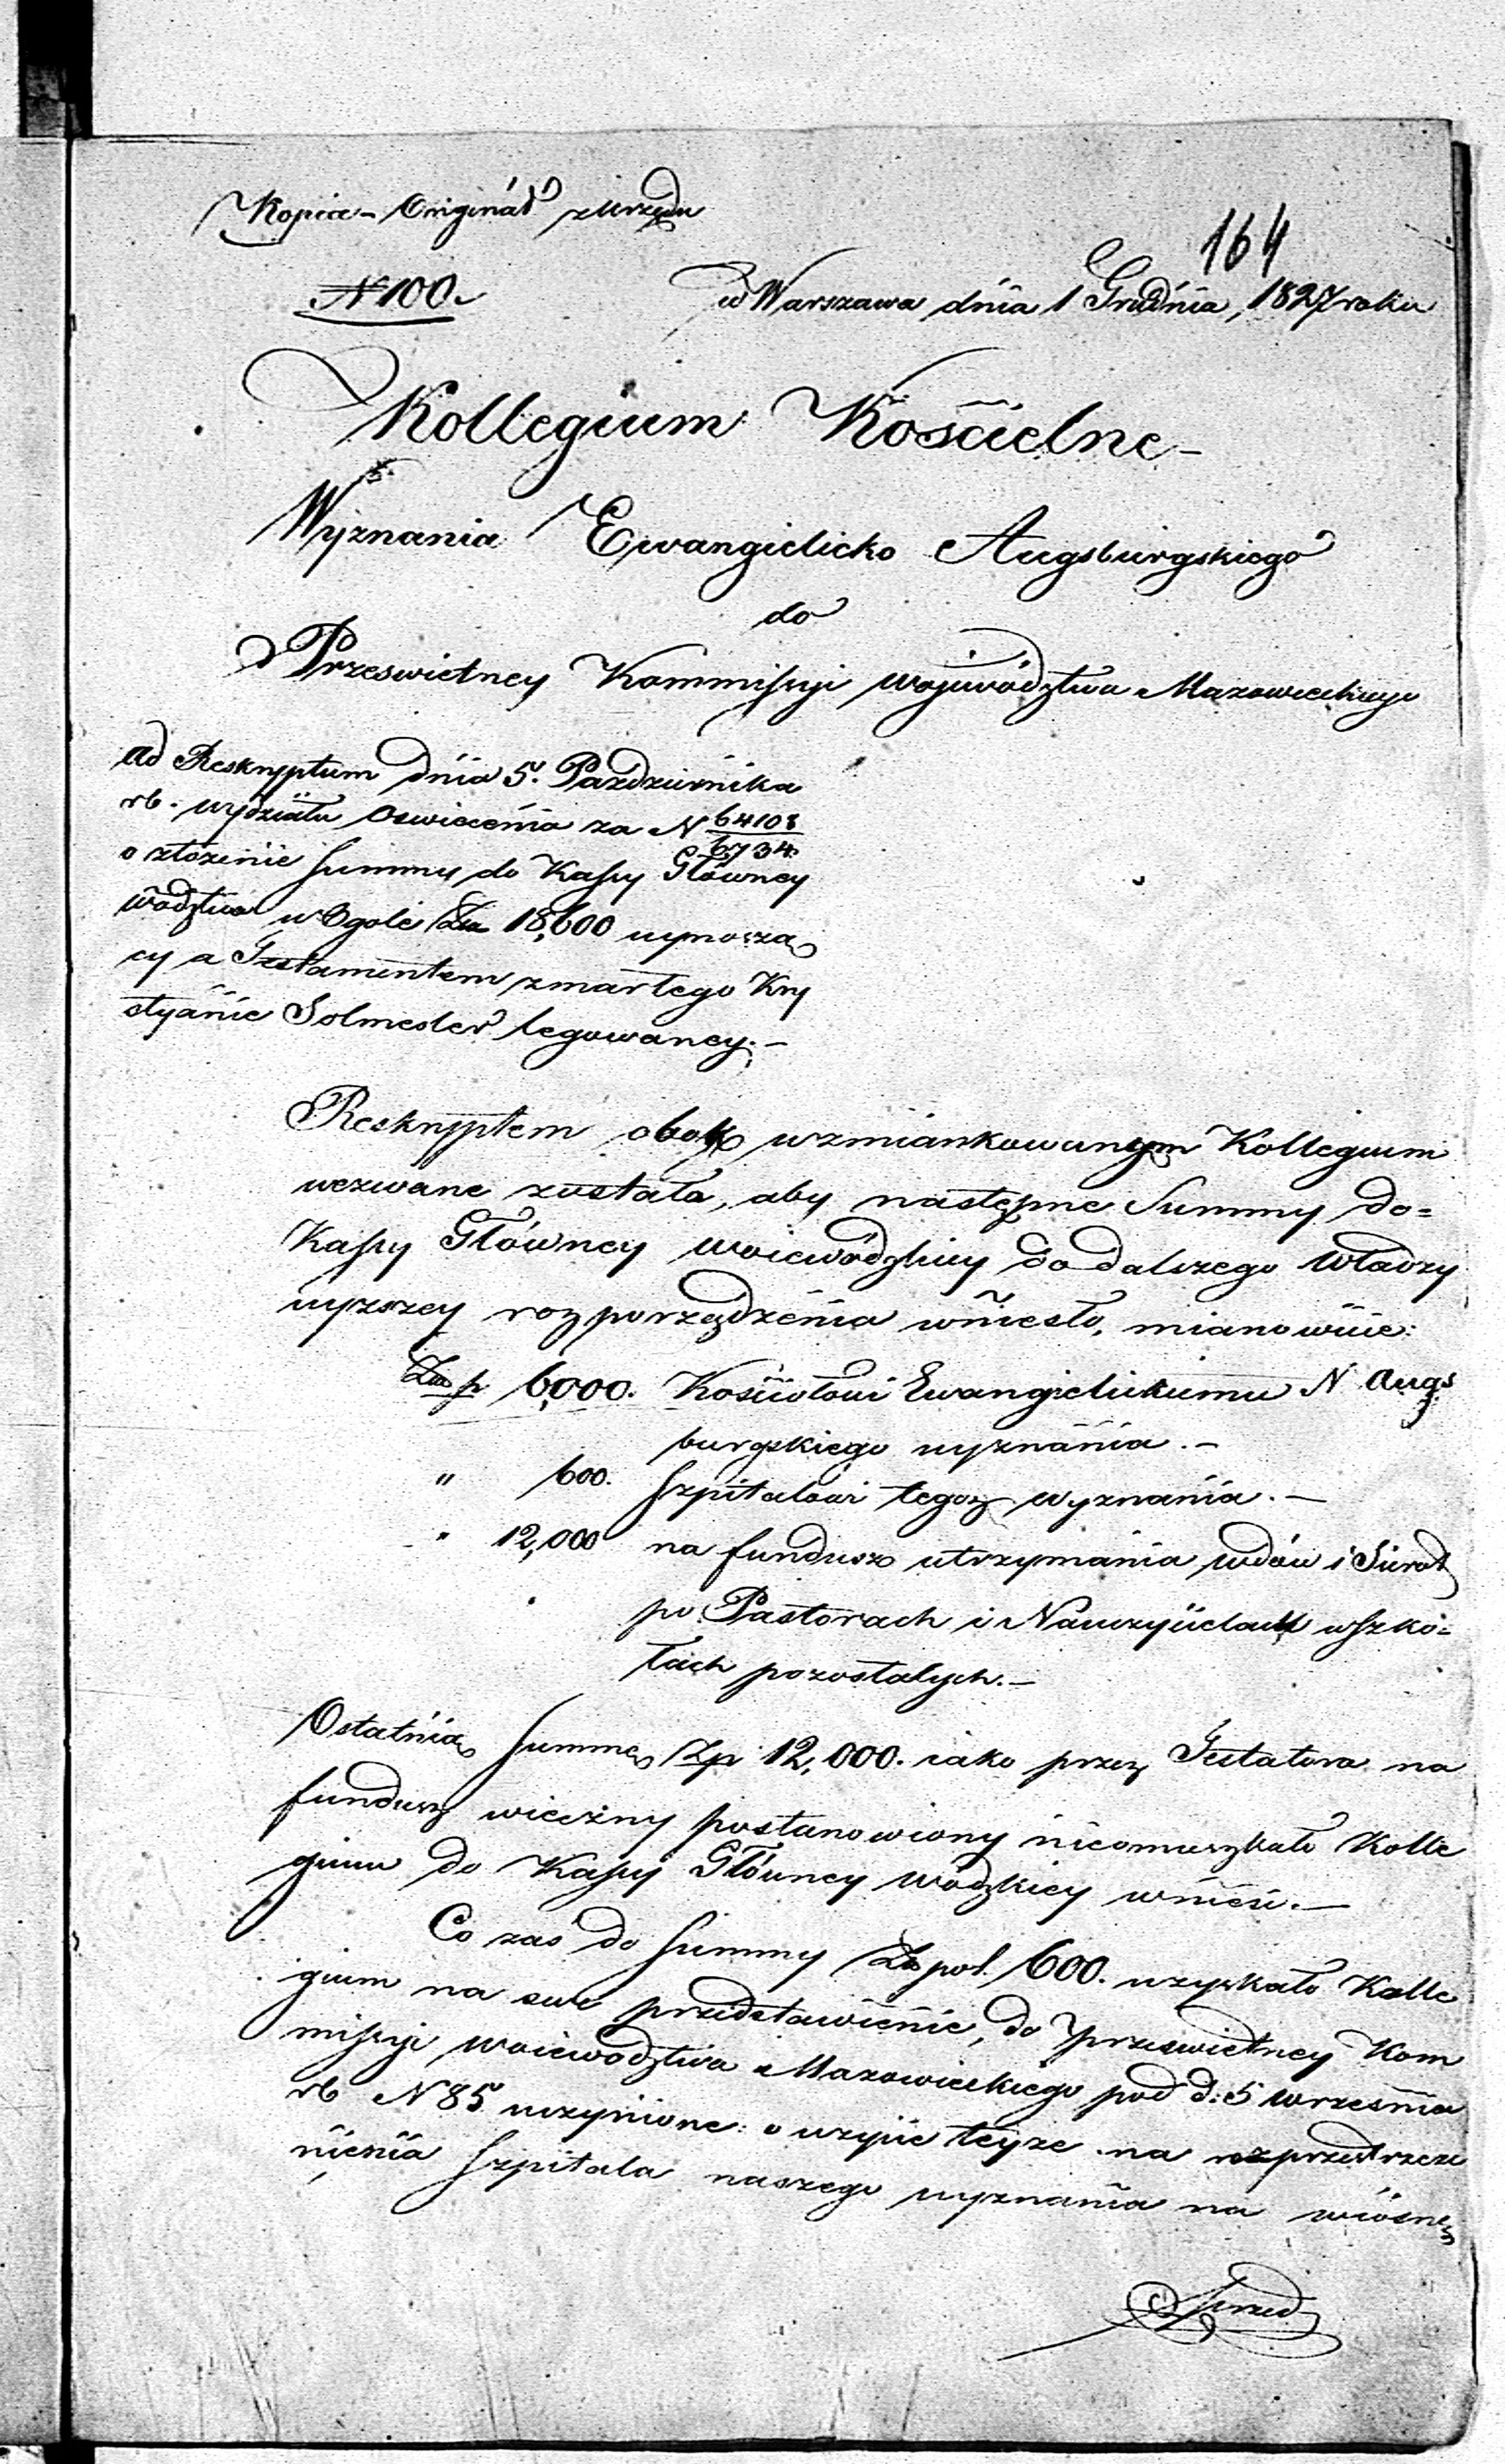 Kopia - Originał z Urzędu
164
N 100.
w Warszawa dnia 1 Grudnia, 1827 roku
Kollegium Kościelne -
Wyznania Ewangielicko Augsburgskiego
do
Przeswietney Kommissyi wojewodztwa Mazowieckiego
ad Reskryptum dnia 5. Pazdziernika
rb. wydziału Oswiecenia za N 64108
6734.
o złożenie summy do Kassy Główney
wodztwa w Ogole Zło 18,600 wynoszą
cy a Testamentem zmarłego Kry
styanie Solmesler legowaney. -
Reskryptem obok wzmiankowanym Kollegium
wezwane zostało, aby następne Summy do=
Kassy Główney woiewódzkiey do dalszego władzy
wyzszey rozporządzenia wniesło, mianowicie:
Zło p 6,000. Kościołowi Ewangielickiemu N Augs
burgskiego wyznania. -
" 600. Szpitalowi tegoz wyznania. -
" 12,000 na fundusz utrzymania wdów i Sierot
po Pastorach i Nauczycielach w szko=
łach pozostałych. -
Ostatnią summę Zp 12,000. iako przez Testatora na
fundusz wieczny postanowiony nieomieszkało Kolle
gium do Kassy Główney wodzkiey wnieść. -
Co zas do summy Zło pol. 600. uzyskało Kolle
gium na swe przedstawienie, do Przeswietney Kom
missyi woiewodztwa Mazowieckiego pod d: 5 wrzesnia
rb N 85 uczynione o uzycie teyze na rozprzestrze
nienia Szpitala naszego wyznania na wiosnę
przed